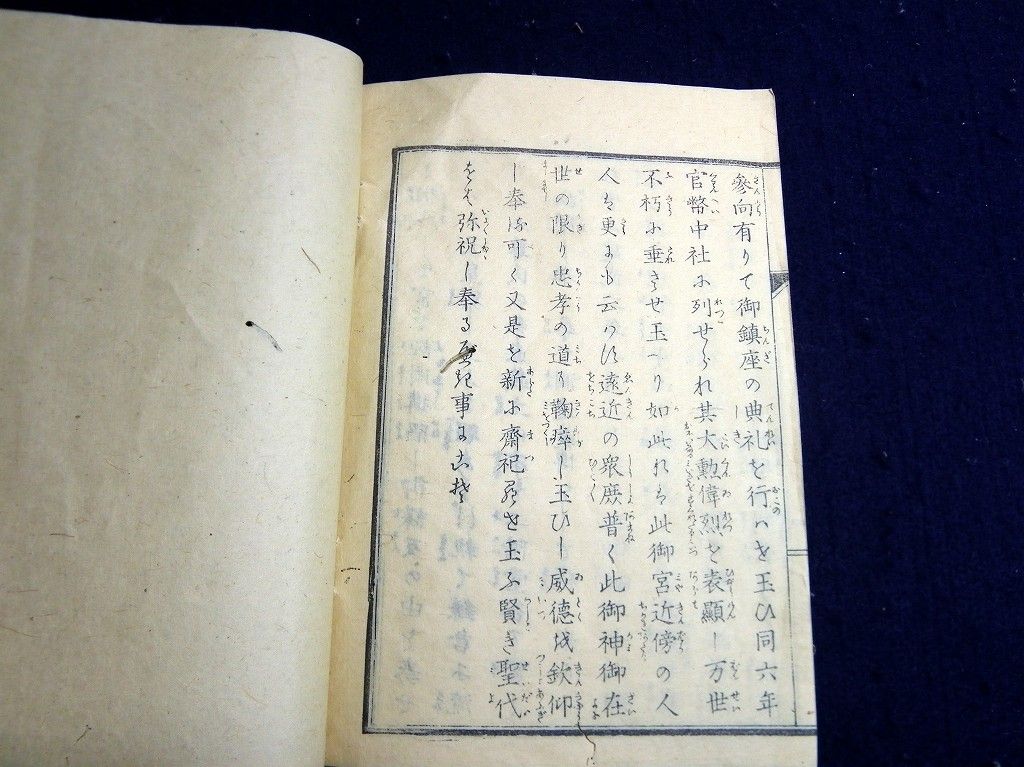 參向有りて御鎮座の典礼を行ハせ玉ひ同六年
官幣中社に列せられ其大勲偉烈を表顯し万世
不朽に垂させ玉へり如此れは此御宮近傍の人
人は更にも云ハす遠近の衆庶普く此御神御在
世の限り忠孝の道に鞠瘁し玉ひし威德を欽仰
し奉る可く又是を新に齋祀らせ玉ふ賢き聖代
をも弥祝し奉るべき事にこそ